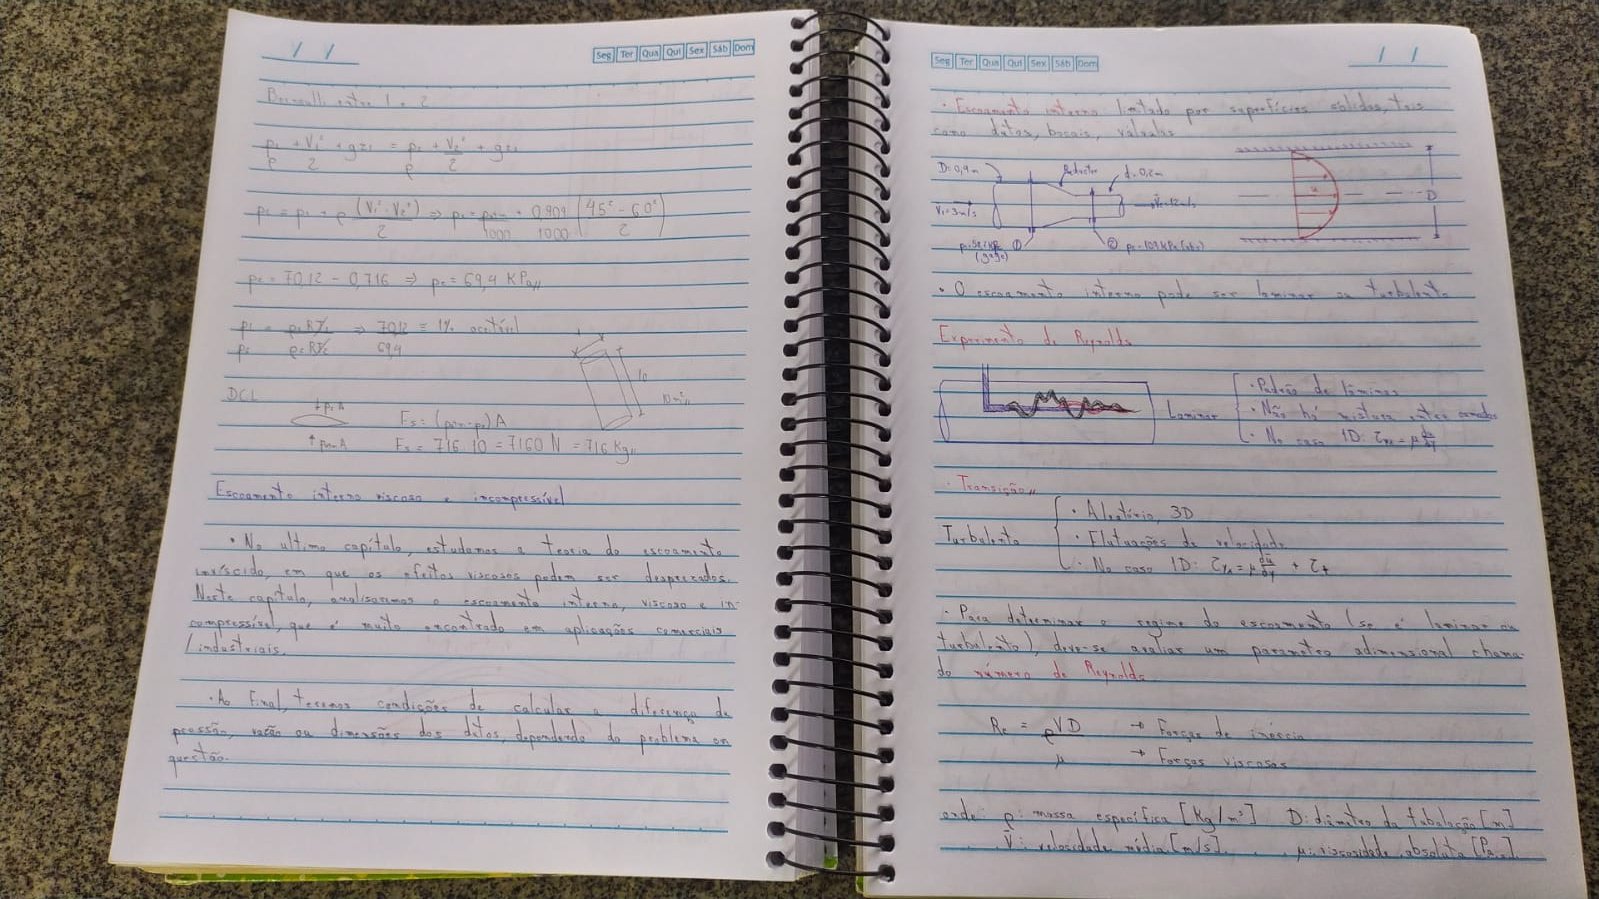 / /
Seg Ter Qua Qui Sex Sáb Dom
Bernoulli entre 1 e 2
p₁ + V₁² + gz₁ = p₂ + V₂² + gz₂
ρ 2 ρ 2
p₂ = p₁ + ρ (V₁² - V₂²) ⇒ p₂ = patm + 0,909 (45² - 60²)
2 1000 1000 2
p₂ = 70,12 - 0,716 ⇒ p₂ = 69,4 KPa
70,12 ≅ 1% aceitável
69,4
DCL
10
10 m²
↓ p₂A
Fs = (patm - p₂)A
↑ patmA Fs = 716.10 = 7160 N = 716 Kg
Escoamento interno viscoso e incompressível
• No ultimo capítulo, estudamos a teoria do escoamento
invíscido, em que os efeitos viscosos podem ser desprezados.
Neste capítulo, analisaremos o escoamento interno, viscoso e in-
compressível, que é muito encontrado em aplicações comerciais
/industriais.
• Ao Final, teremos condições de calcular a diferença de
pressão, vazão ou dimensões dos dutos, dependendo do problema em
questão.
Seg Ter Qua Qui Sex Sáb Dom
/ /
• Escoamento interno limitado por superfícies sólidas, tais
como dutos, bocais, válvulas
D=0,4m Redutor d=0,2m
V₁=3m/s V₂=12m/s
D
u
(gage)
① ②
• O escoamento interno pode ser laminar ou turbulento
Experimento de Reynolds
Laminar
• Padrão de lâminas
• Não há mistura entre camadas
• No caso 1D: τyx = μ du/dy
• Transição
Turbulento
• Aleatório, 3D
• Flutuações de velocidade
• No caso 1D: τyx = μ dū/dy + τt
• Para determinar o regime do escoamento (se é laminar ou
turbulento), deve-se avaliar um parametro adimensional chama-
do número de Reynolds
Re = ρVD → Forças de inércia
μ → Forças viscosas
onde: ρ: massa específica [Kg/m³] D: diâmetro da tubulação [m]
V̄: velocidade média [m/s] μ: viscosidade absoluta